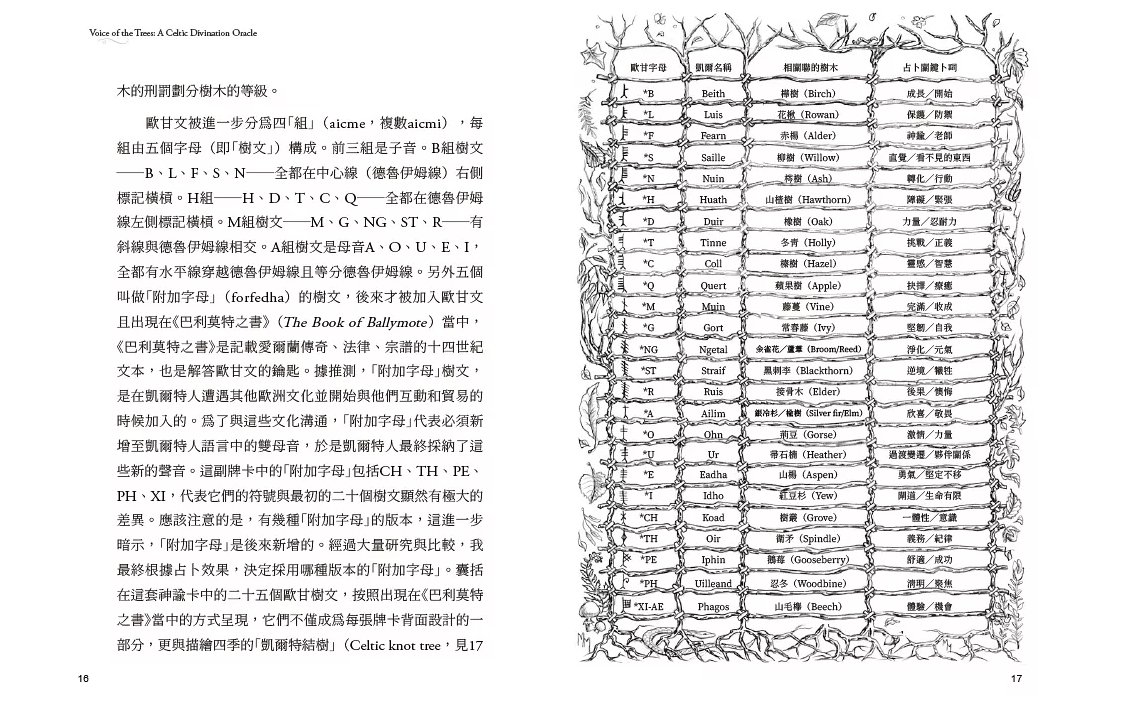 Voice of the Trees: A Celtic Divination Oracle
木的刑罰劃分樹木的等級。
歐甘文被進一步分為四「組」（aicme，複數aicmi），每
組由五個字母（即「樹文」）構成。前三組是子音。B組樹文
——B、L、F、S、N——全都在中心線（德魯伊姆線）右側
標記橫槓。H組——H、D、T、C、Q——全都在德魯伊姆
線左側標記橫槓。M組樹文——M、G、NG、ST、R——有
斜線與德魯伊姆線相交。A組樹文是母音A、O、U、E、I，
全都有水平線穿越德魯伊姆線且等分德魯伊姆線。另外五個
叫做「附加字母」（forfedha）的樹文，後來才被加入歐甘文
且出現在《巴利莫特之書》（The Book of Ballymote）當中，
《巴利莫特之書》是記載愛爾蘭傳奇、法律、宗譜的十四世紀
文本，也是解答歐甘文的鑰匙。據推測，「附加字母」樹文，
是在凱爾特人遭遇其他歐洲文化並開始與他們互動和貿易的
時候加入的。為了與這些文化溝通，「附加字母」代表必須新
增至凱爾特人語言中的雙母音，於是凱爾特人最終採納了這
些新的聲音。這副牌卡中的「附加字母」包括CH、TH、PE、
PH、XI，代表它們的符號與最初的二十個樹文顯然有極大的
差異。應該注意的是，有幾種「附加字母」的版本，這進一步
暗示，「附加字母」是後來新增的。經過大量研究與比較，我
最終根據占卜效果，決定採用哪種版本的「附加字母」。囊括
在這套神諭卡中的二十五個歐甘樹文，按照出現在《巴利莫特
之書》當中的方式呈現，它們不僅成為每張牌卡背面設計的一
部分，更與描繪四季的「凱爾特結樹」（Celtic knot tree，見17
16
歐甘字母 凱爾名稱 相關聯的樹木 占卜關鍵卜詞
*B Beith 樺樹（Birch） 成長／開始
*L Luis 花楸（Rowan） 保護／防禦
*F Fearn 赤楊（Alder） 神諭／老師
*S Saille 柳樹（Willow） 直覺／看不見的東西
*N Nuin 梣樹（Ash） 轉化／行動
*H Huath 山楂樹（Hawthorn） 障礙／緊張
*D Duir 橡樹（Oak） 力量／忍耐力
*T Tinne 冬青（Holly） 挑戰／正義
*C Coll 榛樹（Hazel） 靈感／智慧
*Q Quert 蘋果樹（Apple） 抉擇／療癒
*M Muin 藤蔓（Vine） 完滿／收成
*G Gort 常春藤（Ivy） 堅韌／自我
*NG Ngetal 金雀花／蘆葦（Broom/Reed） 淨化／元氣
*ST Straif 黑刺李（Blackthorn） 逆境／犧牲
*R Ruis 接骨木（Elder） 後果／懊悔
*A Ailim 銀冷杉／榆樹（Silver fir/Elm） 欣喜／敬畏
*O Ohn 荊豆（Gorse） 激情／力量
*U Ur 帚石楠（Heather） 過渡變遷／夥伴關係
*E Eadha 山楊（Aspen） 勇氣／堅定不移
*I Idho 紅豆杉（Yew） 闈道／生命有限
*CH Koad 樹叢（Grove） 一體性／意識
*TH Oir 衛矛（Spindle） 義務／紀律
*PE Iphin 鵝莓（Gooseberry） 舒適／成功
*PH Uilleand 忍冬（Woodbine） 清明／聚焦
*XI-AE Phagos 山毛櫸（Beech） 體驗／機會
17